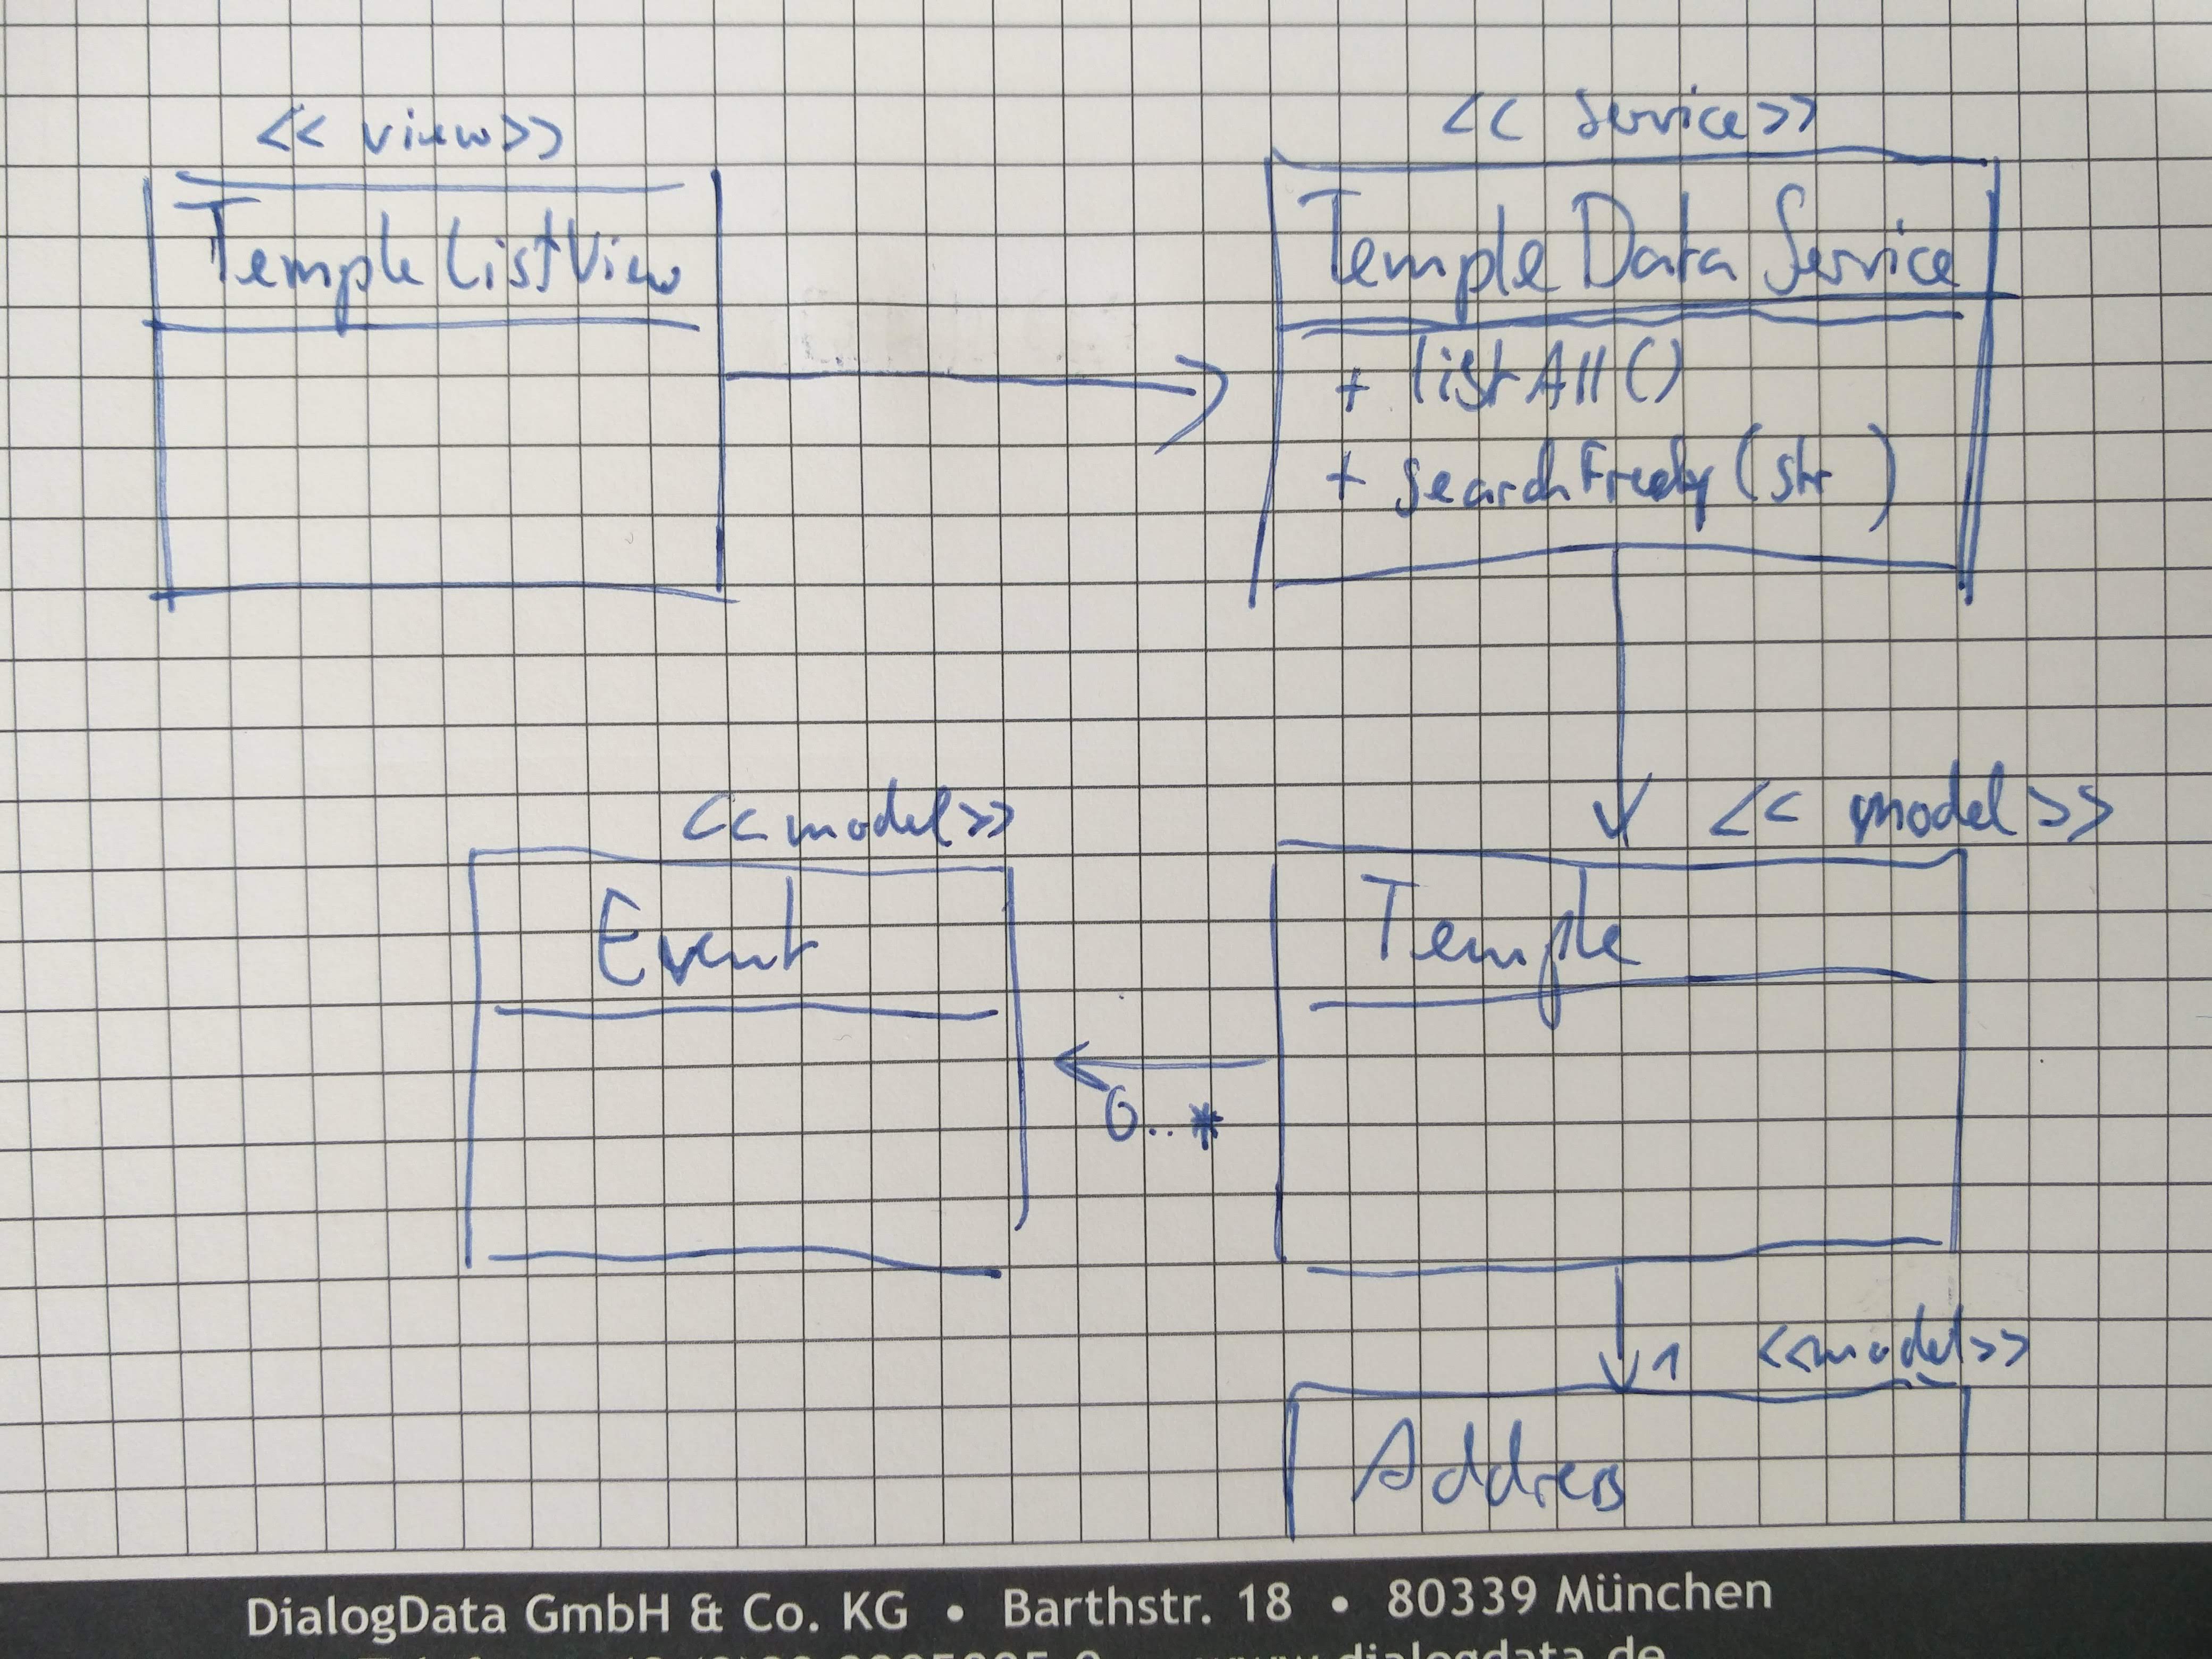 << view >>
TempleListView
<< Service >>
TempleDataService
+ listAll()
+ searchFreely(str )
<< model >>
Event
<< model >>
Temple
0..*
1
<<model>>
Address
DialogData GmbH & Co. KG • Barthstr. 18 • 80339 München
www.dialogdata.de